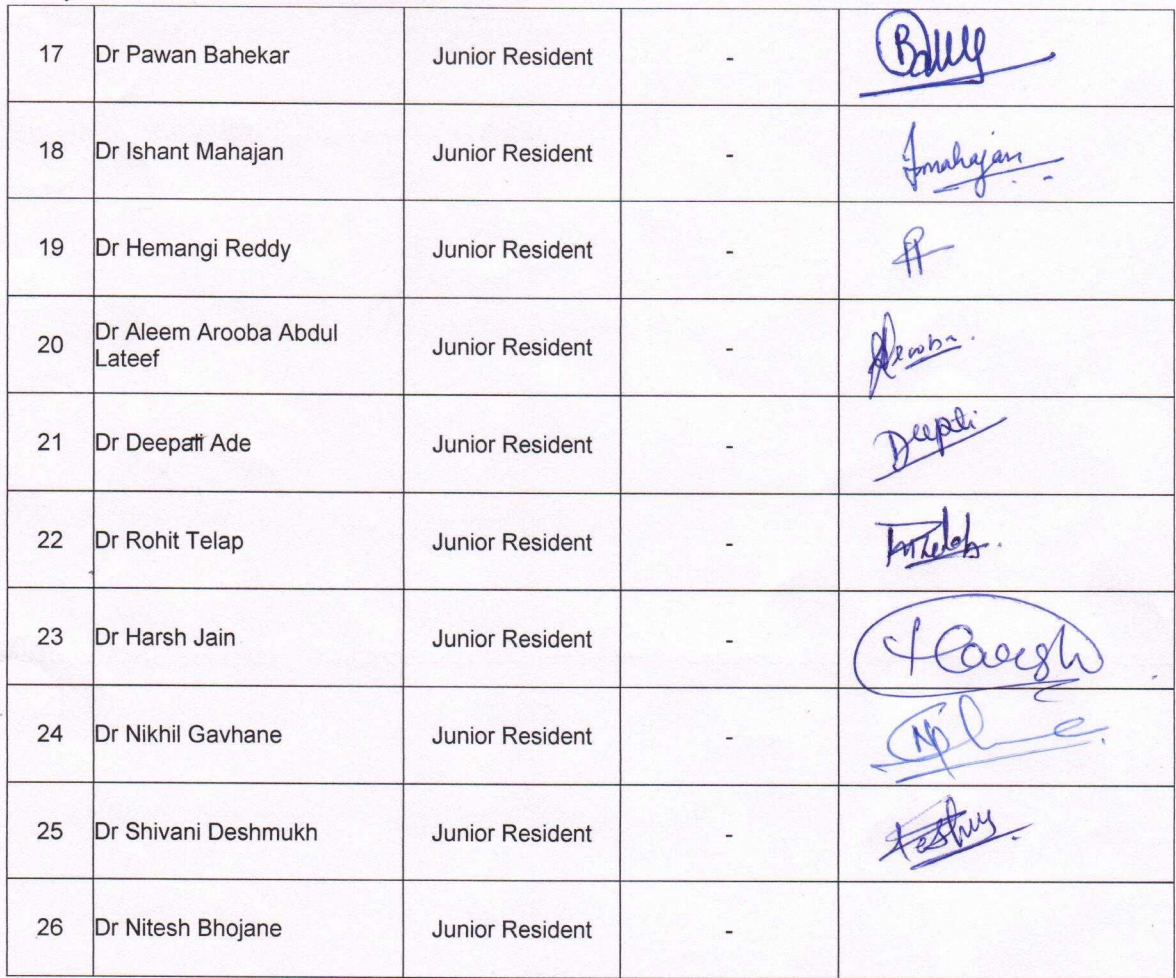 17 Dr Pawan Bahekar Junior Resident -
18 Dr Ishant Mahajan Junior Resident - Imahajan
19 Dr Hemangi Reddy Junior Resident -
20 Dr Aleem Arooba Abdul
Lateef Junior Resident -
21 Dr Deepati Ade Junior Resident - Deepti
22 Dr Rohit Telap Junior Resident -
23 Dr Harsh Jain Junior Resident - Harsh
24 Dr Nikhil Gavhane Junior Resident -
25 Dr Shivani Deshmukh Junior Resident -
26 Dr Nitesh Bhojane Junior Resident -